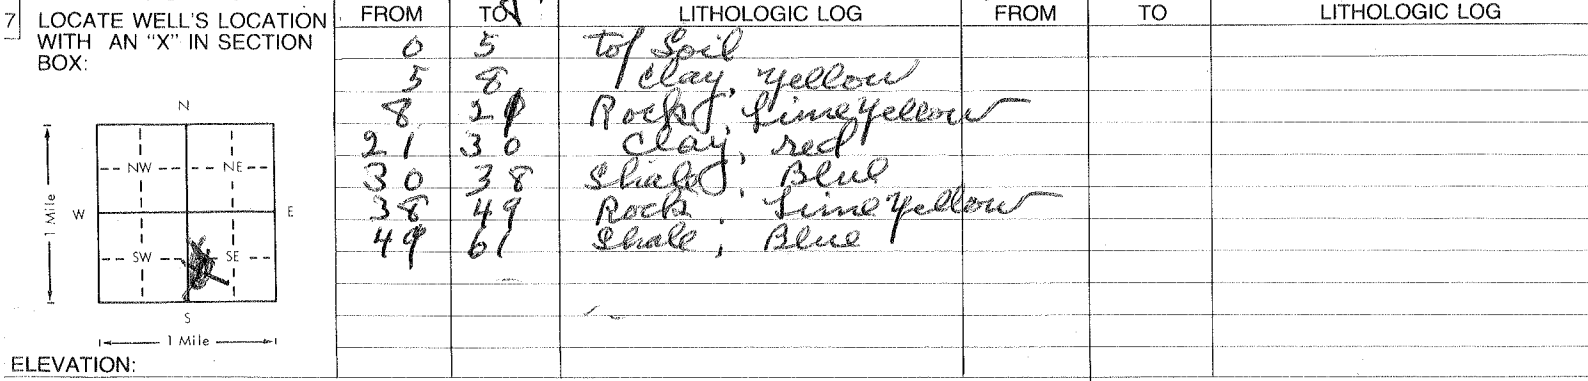 7 LOCATE WELL'S LOCATION WITH AN "X" IN SECTION BOX:
N
NW NE
W E
SW SE
S
1 Mile
1 Mile
ELEVATION:
FROM TO LITHOLOGIC LOG FROM TO LITHOLOGIC LOG
0 5 top Soil
5 8 Clay, yellow
8 21 Rock, Lime yellow
21 30 Clay, red
30 38 Shale, Blue
38 49 Rock, Lime yellow
49 61 Shale, Blue